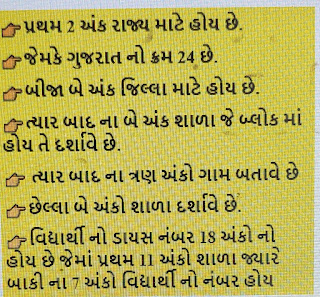 👉પ્રથમ 2 અંક રાજ્ય માટે હોય છે.
👉જેમકે ગુજરાત નો ક્રમ 24 છે.
👉બીજા બે અંક જિલ્લા માટે હોય છે.
👉ત્યાર બાદ ના બે અંક શાળા જે બ્લોક માં
હોય તે દર્શાવે છે.
👉 ત્યાર બાદ ના ત્રણ અંકો ગામ બતાવે છે
👉છેલ્લા બે અંકો શાળા દર્શાવે છે.
👉વિદ્યાર્થી નો ડાયસ નંબર 18 અંકો નો
હોય છે જેમાં પ્રથમ 11 અંકો શાળા જ્યારે
બાકી ના 7 અંકો વિદ્યાર્થી નો નંબર હોય